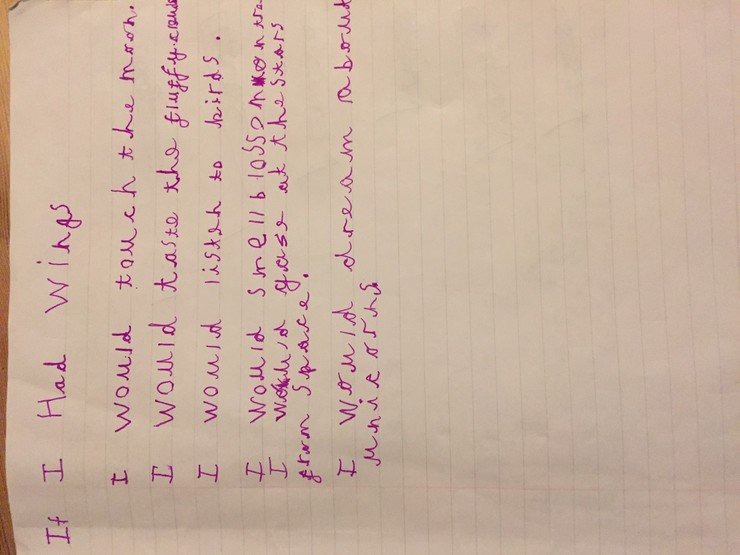 If I Had Wings
I would touch the moon.
I would taste the fluffy
I would listen to birds.
I would smell blossom on
I would gase at the stars
from space.
I would dream about
unicorns